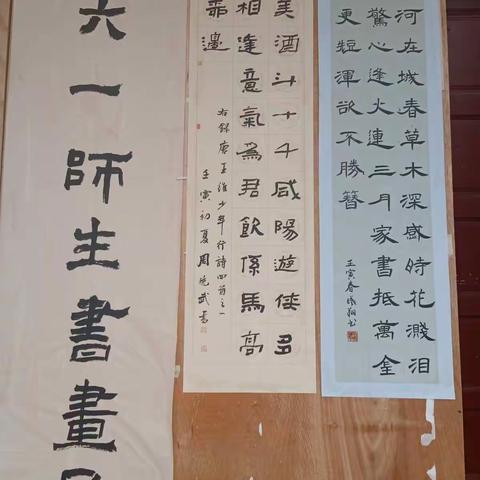 河在城春草木深感時花濺泪
驚心逢火連三月家書抵萬金
更短渾欲不勝簪
壬寅春
美酒斗十千咸陽遊俠多
相逢意氣為君飲係馬高
邊
右録唐王維少年行詩四首之一
壬寅初夏周曉武書
六一師生書畫